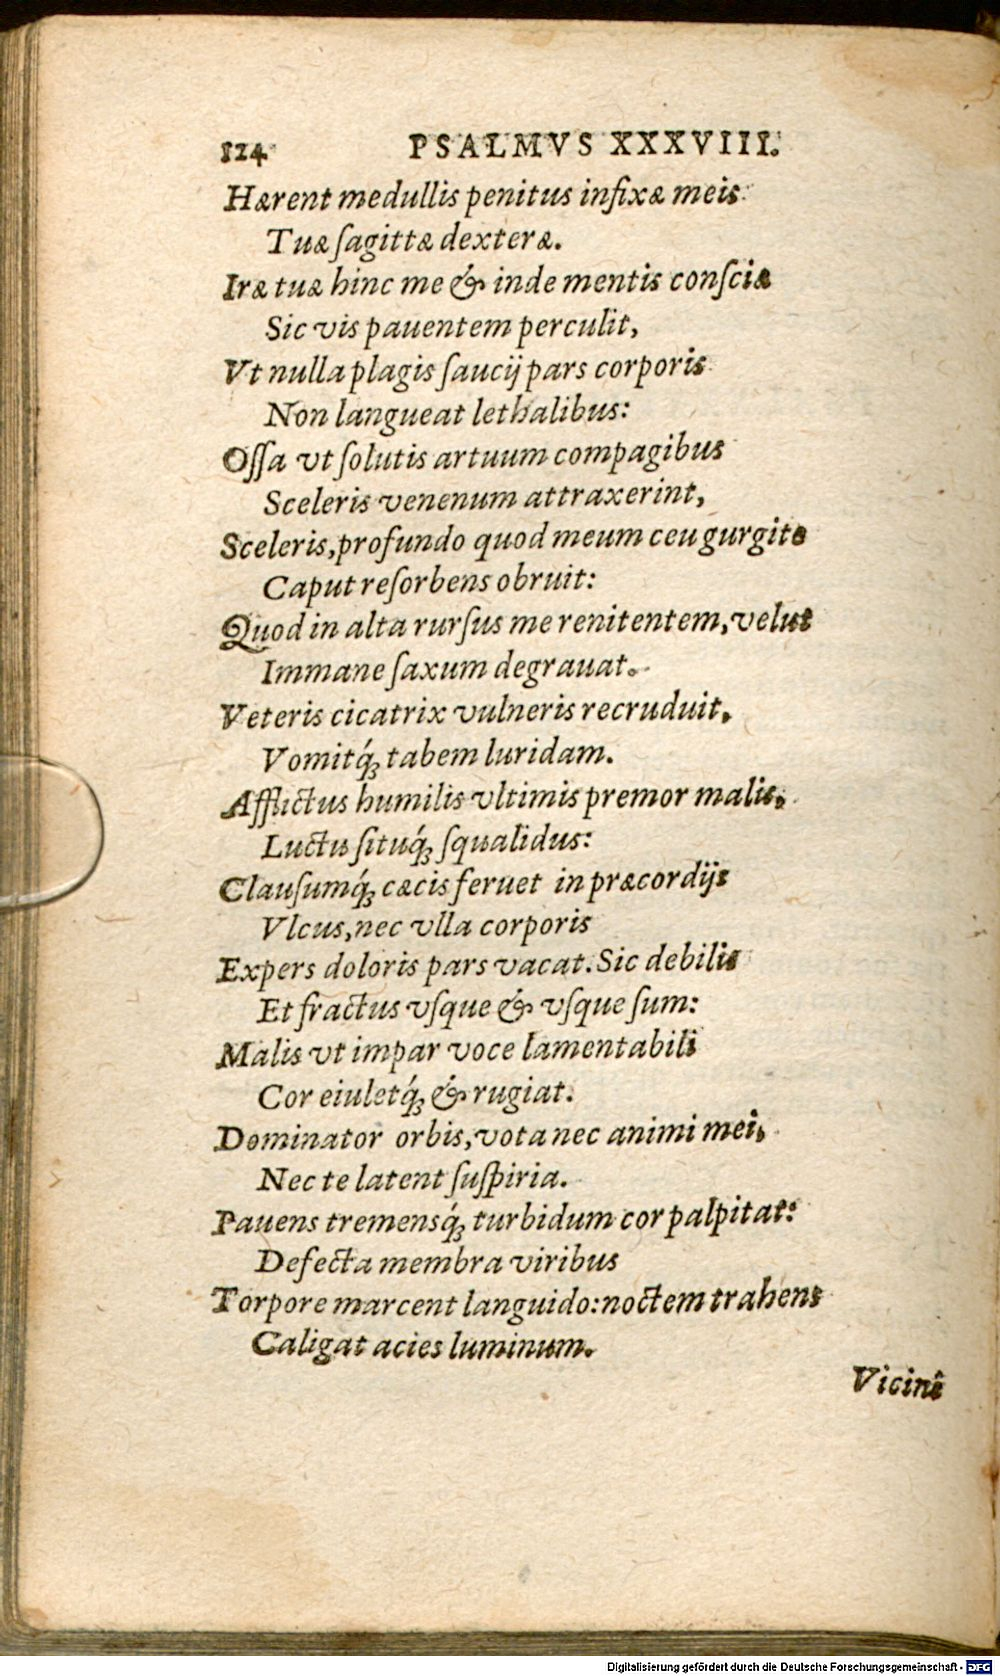 124 PSALMVS XXXVIII.
Hærent medullis penitus infixæ meis
Tuæ ſagittæ dexteræ.
Iræ tuæ hinc me & inde mentis conſciæ
Sic vis pauentem perculit,
Vt nulla plagis ſaucij pars corporis
Non langueat lethalibus:
Oſſa vt ſolutis artuum compagibus
Sceleris venenum attraxerint,
Sceleris, profundo quod meum ceu gurgite
Caput reſorbens obruit:
Quod in alta rurſus me renitentem, velut
Immane ſaxum degrauat.
Veteris cicatrix vulneris recruduit,
Vomitq́ꝫ tabem luridam.
Afflictus humilis vltimis premor malis,
Luctu ſituq́ꝫ ſqualidus:
Clauſumq́ꝫ cæcis feruet in præcordijs
Vlcus, nec vlla corporis
Expers doloris pars vacat. Sic debilis
Et fractus vſque & vſque ſum:
Malis vt impar voce lamentabili
Cor eiuletq́ꝫ & rugiat.
Dominator orbis, vota nec animi mei,
Nec te latent ſuſpiria.
Pauens tremensq́ꝫ turbidum cor palpitat:
Defecta membra viribus
Torpore marcent languido: noctem trahens
Caligat acies luminum.
Vicinê
Digitalisierung gefördert durch die Deutsche Forschungsgemeinschaft - DFG